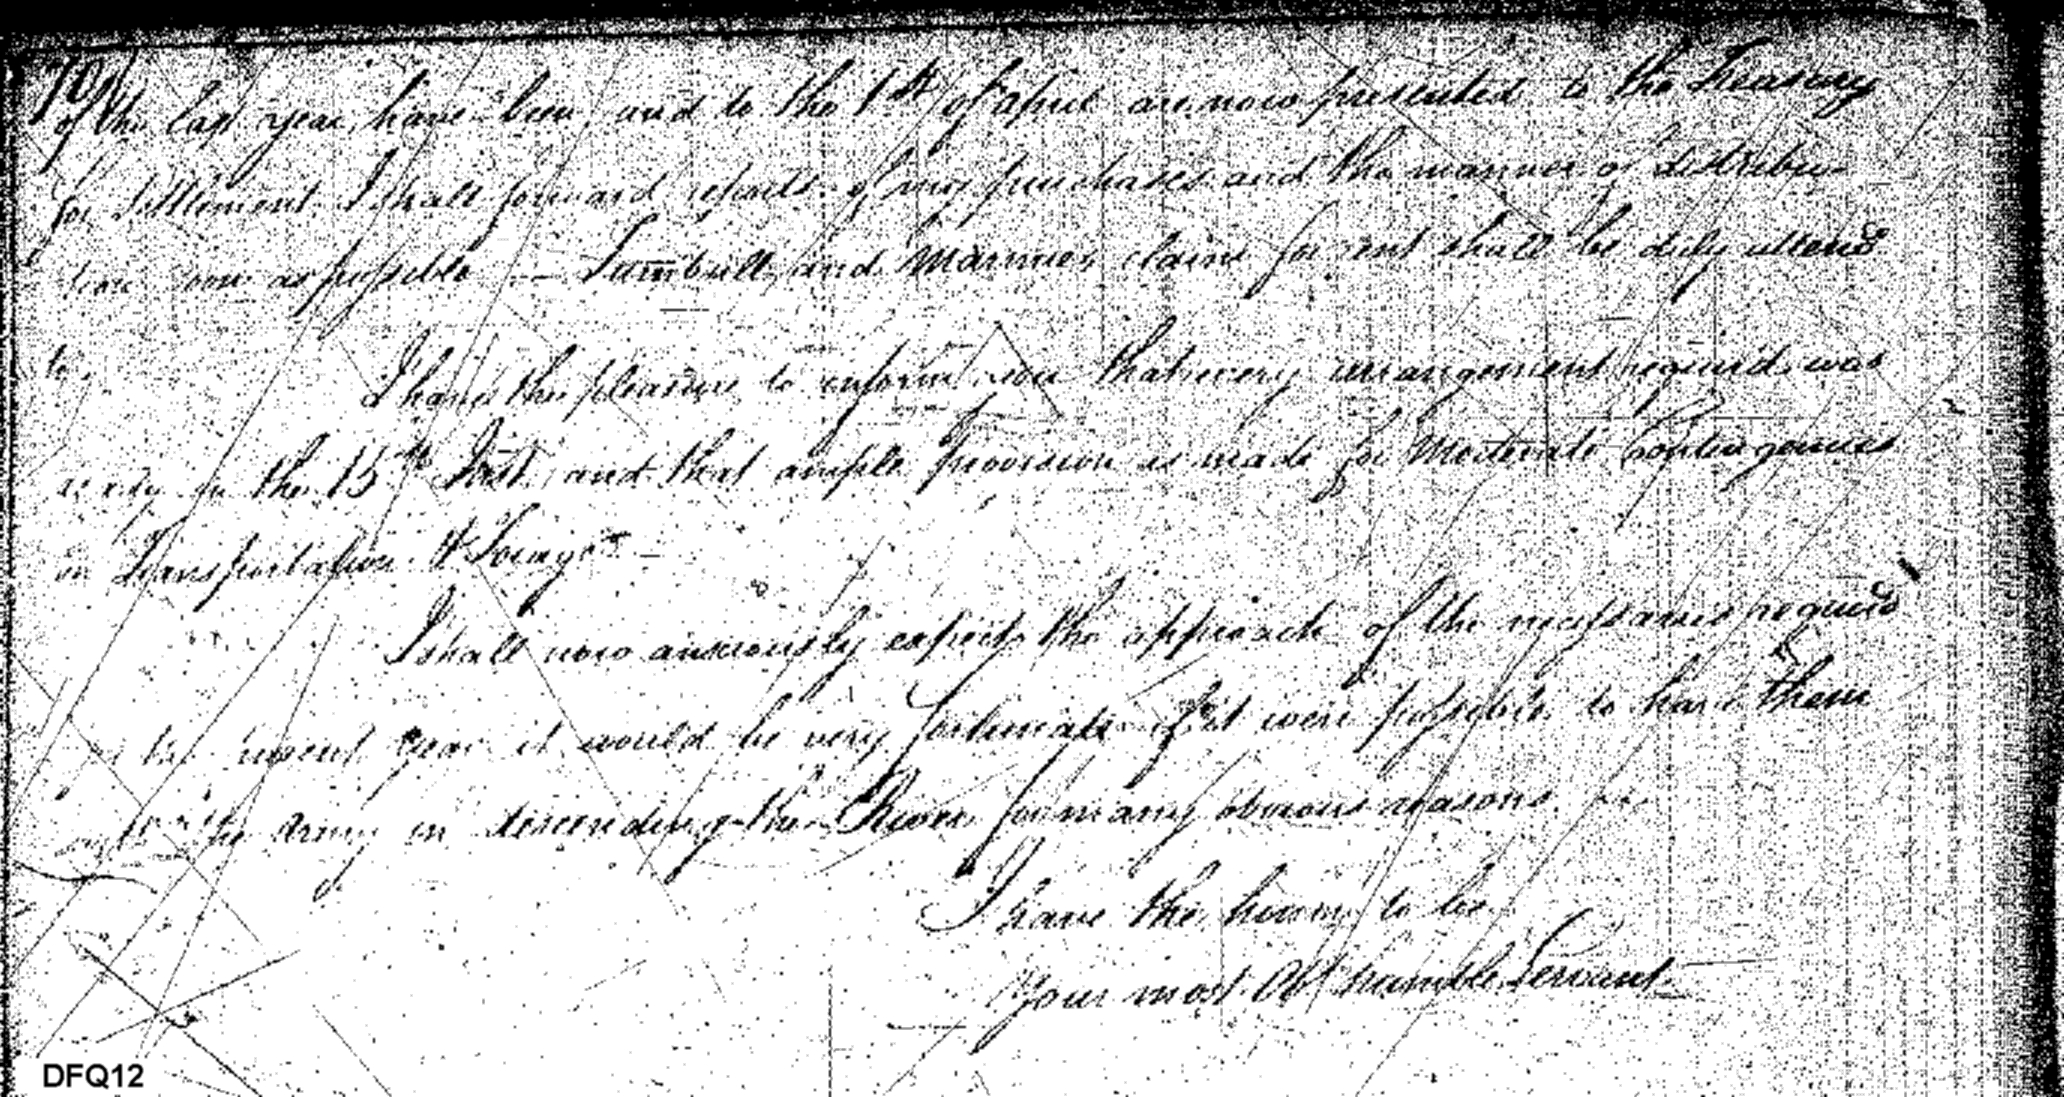 70
of the last year have been and to the 1st of April are now presented to the Treasury
for Settlement. I shall forward reports of my purchases and the manner of distribu-
soon as possible — Turnbull and claim for rent shall be duly attend
to.
I have the pleasure to inform you that every arrangement required was
ready on the 15th Inst. and that ample Provision is made for Moderate Contingencies
in Transportation & Forage —
I shall now anxiously expect the approach of the necessaries required
the present year it would be very fortunate if it were possible to have them
the Army in descending the River for many obvious reasons.
I have the honor to be
Your most Obt humble Servant.
DFQ12